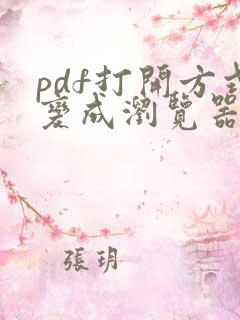 pdf打開方式
變成瀏覽器
張玥